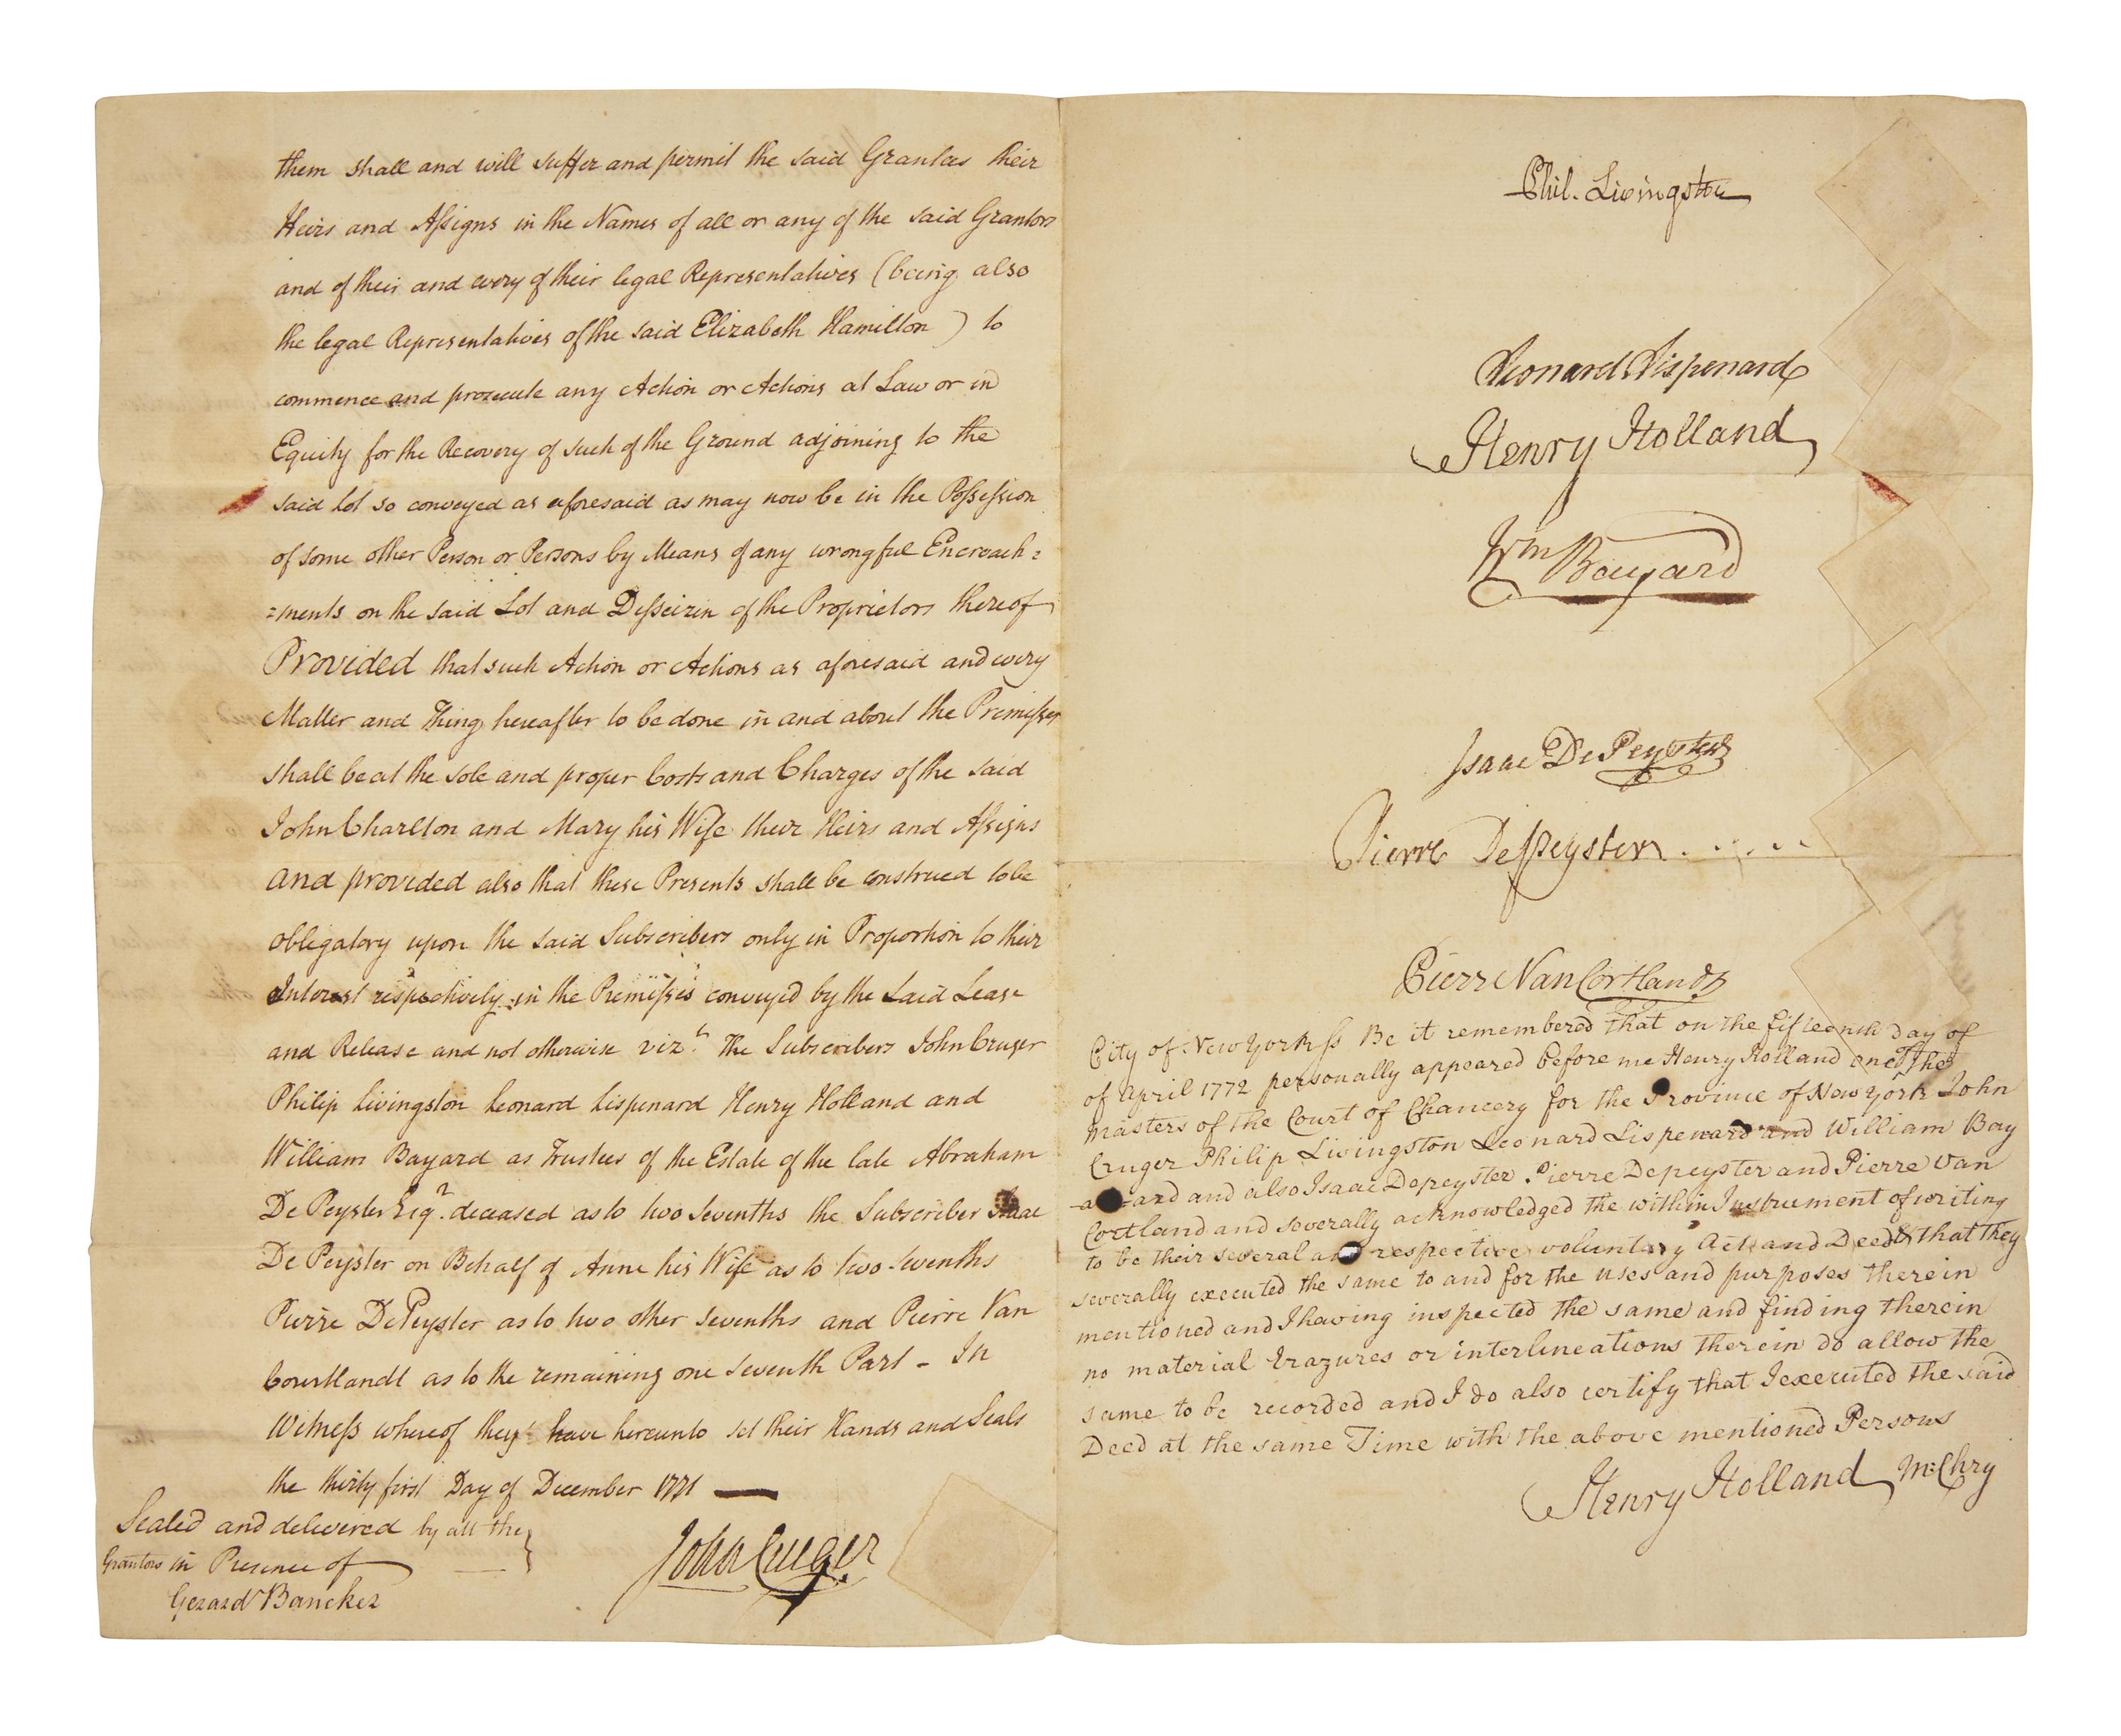 them shall and will suffer and permit the said Grantees their
Heirs and Assigns in the Names of all or any of the said Grantors
and of their and every of their legal Representatives (being also
the legal Representatives of the said Elizabeth Hamilton) to
commence and prosecute any Action or Actions at Law or in
Equity for the Recovery of such of the Ground adjoining to the
said Lot so conveyed as aforesaid as may now be in the Possession
of some other Person or Persons by Means of any wrongful Encroach=
=ments on the said Lot and Disseizin of the Proprietors thereof
Provided that such Action or Actions as aforesaid and every
Matter and Thing hereafter to be done in and about the Premisses
shall be at the sole and proper Costs and Charges of the said
John Charlton and Mary his Wife their Heirs and Assigns
and provided also that these Presents shall be construed to be
obligatory upon the said Subscribers only in Proportion to their
Interest respectively in the Premisses conveyed by the said Lease
and Release and not otherwise vizt. the Subscribers John Cruger
Philip Livingston Leonard Lispenard Henry Holland and
William Bayard as Trustees of the Estate of the late Abraham
De Peyster Esqr. deceased as to two Sevenths the Subscriber Isaac
De Peyster on Behalf of Anne his Wife as to two Sevenths
Pierre DePeyster as to two other Sevenths and Pierre Van
Courtlandt as to the remaining one Seventh Part - In
Witness whereof they have hereunto set their Hands and Seals
the thirty first Day of December 1771
Sealed and delivered by all the
Grantors in Presence of
Gerard Bancker
John Cruger
Phil. Livingston
Leonard Lispenard
Henry Holland
Wm Bayard
Isaac De Peyster
Pierre DePeyster . . . . .
Pierr Van Cortlandt
City of New York ss Be it remembered that on the fifteenth day of
of April 1772 personally appeared before me Henry Holland one of the
Masters of the Court of Chancery for the Province of New York John
Cruger Philip Livingston Leonard Lispenard and William Bay
ard and also Isaac Depeyster Pierre Depeyster and Pierre Van
Cortland and severally acknowledged the within Instrument of writing
to be their several and respective voluntary Acts and Deeds that they
severally executed the same to and for the uses and purposes therein
mentioned and I having inspected the same and finding therein
no material Erazures or interlineations therein do allow the
same to be recorded and I do also certify that I executed the said
Deed at the same Time with the above mentioned Persons
Henry Holland M: Chry